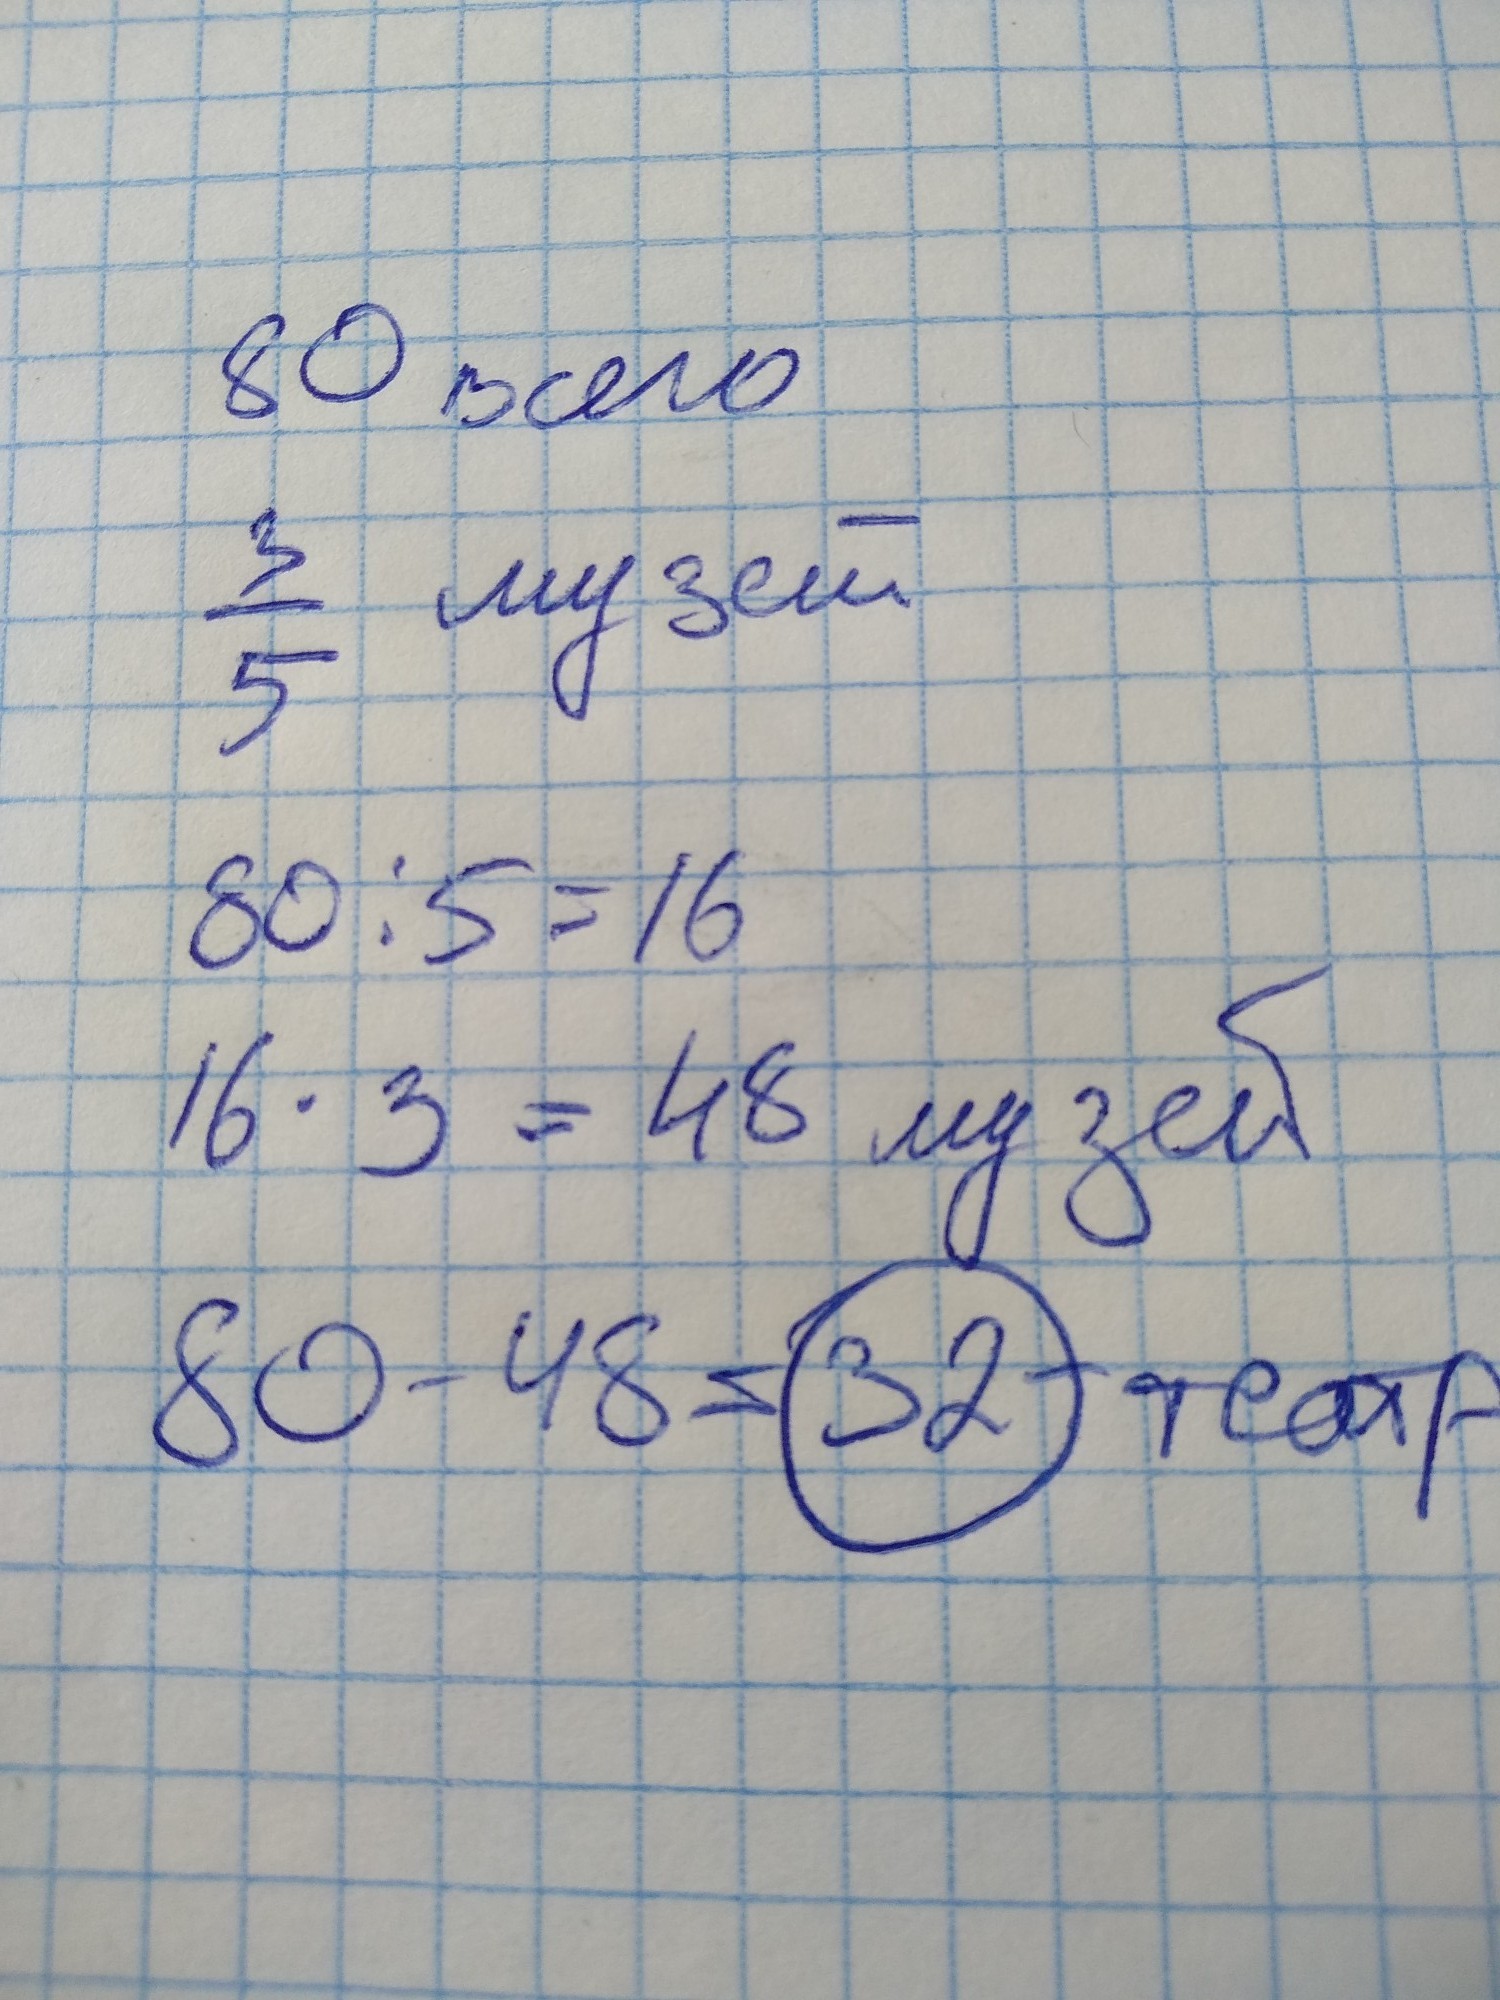 80 всего
3/5 музей
80:5=16
16·3=48 музей
80-48=32-театр